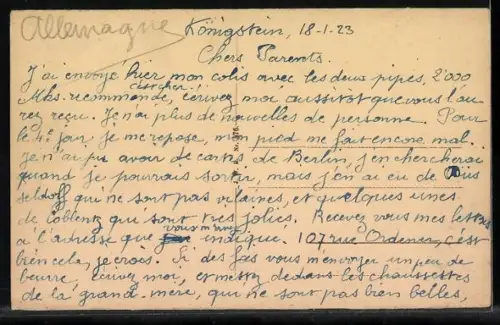 Allemagne
Königstein, 18-1-23
Chers Parents.
J'ai envoyé hier mon colis avec les deux pipes, 2'000
chercher
Mks. recommandé, écrivez moi aussitôt que vous l'au
rez reçu. Je n'ai plus de nouvelles de personne. Pour
le 4e jour je me repose, mon pied me fait encore mal.
Je n'ai pu avoir de cartes de Berlin, j'en chercherai
quand je pourrais sortir, mais j'en ai eu de Dus
seldorff qui ne sont pas vilaines, et quelques unes
de Coblentz qui sont très jolies. Recevez vous mes lettres
vous m'avez
à l'adresse que indiqué. 107 rue Ordener, c'est
bien cela, je crois. Si des fois vous m'envoyer un peu de
beurre, écrivez moi, et mettez dedans les chaussettes
de la grand-mère, qui ne sont pas bien belles,